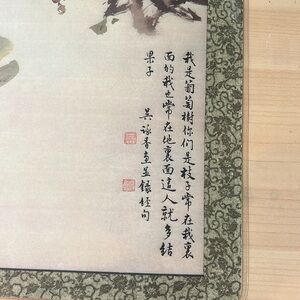 我是葡萄樹你們是枝子常在我裏
面的我也常在他裏面這人就多結
果子
吳詠香畫並錄經句